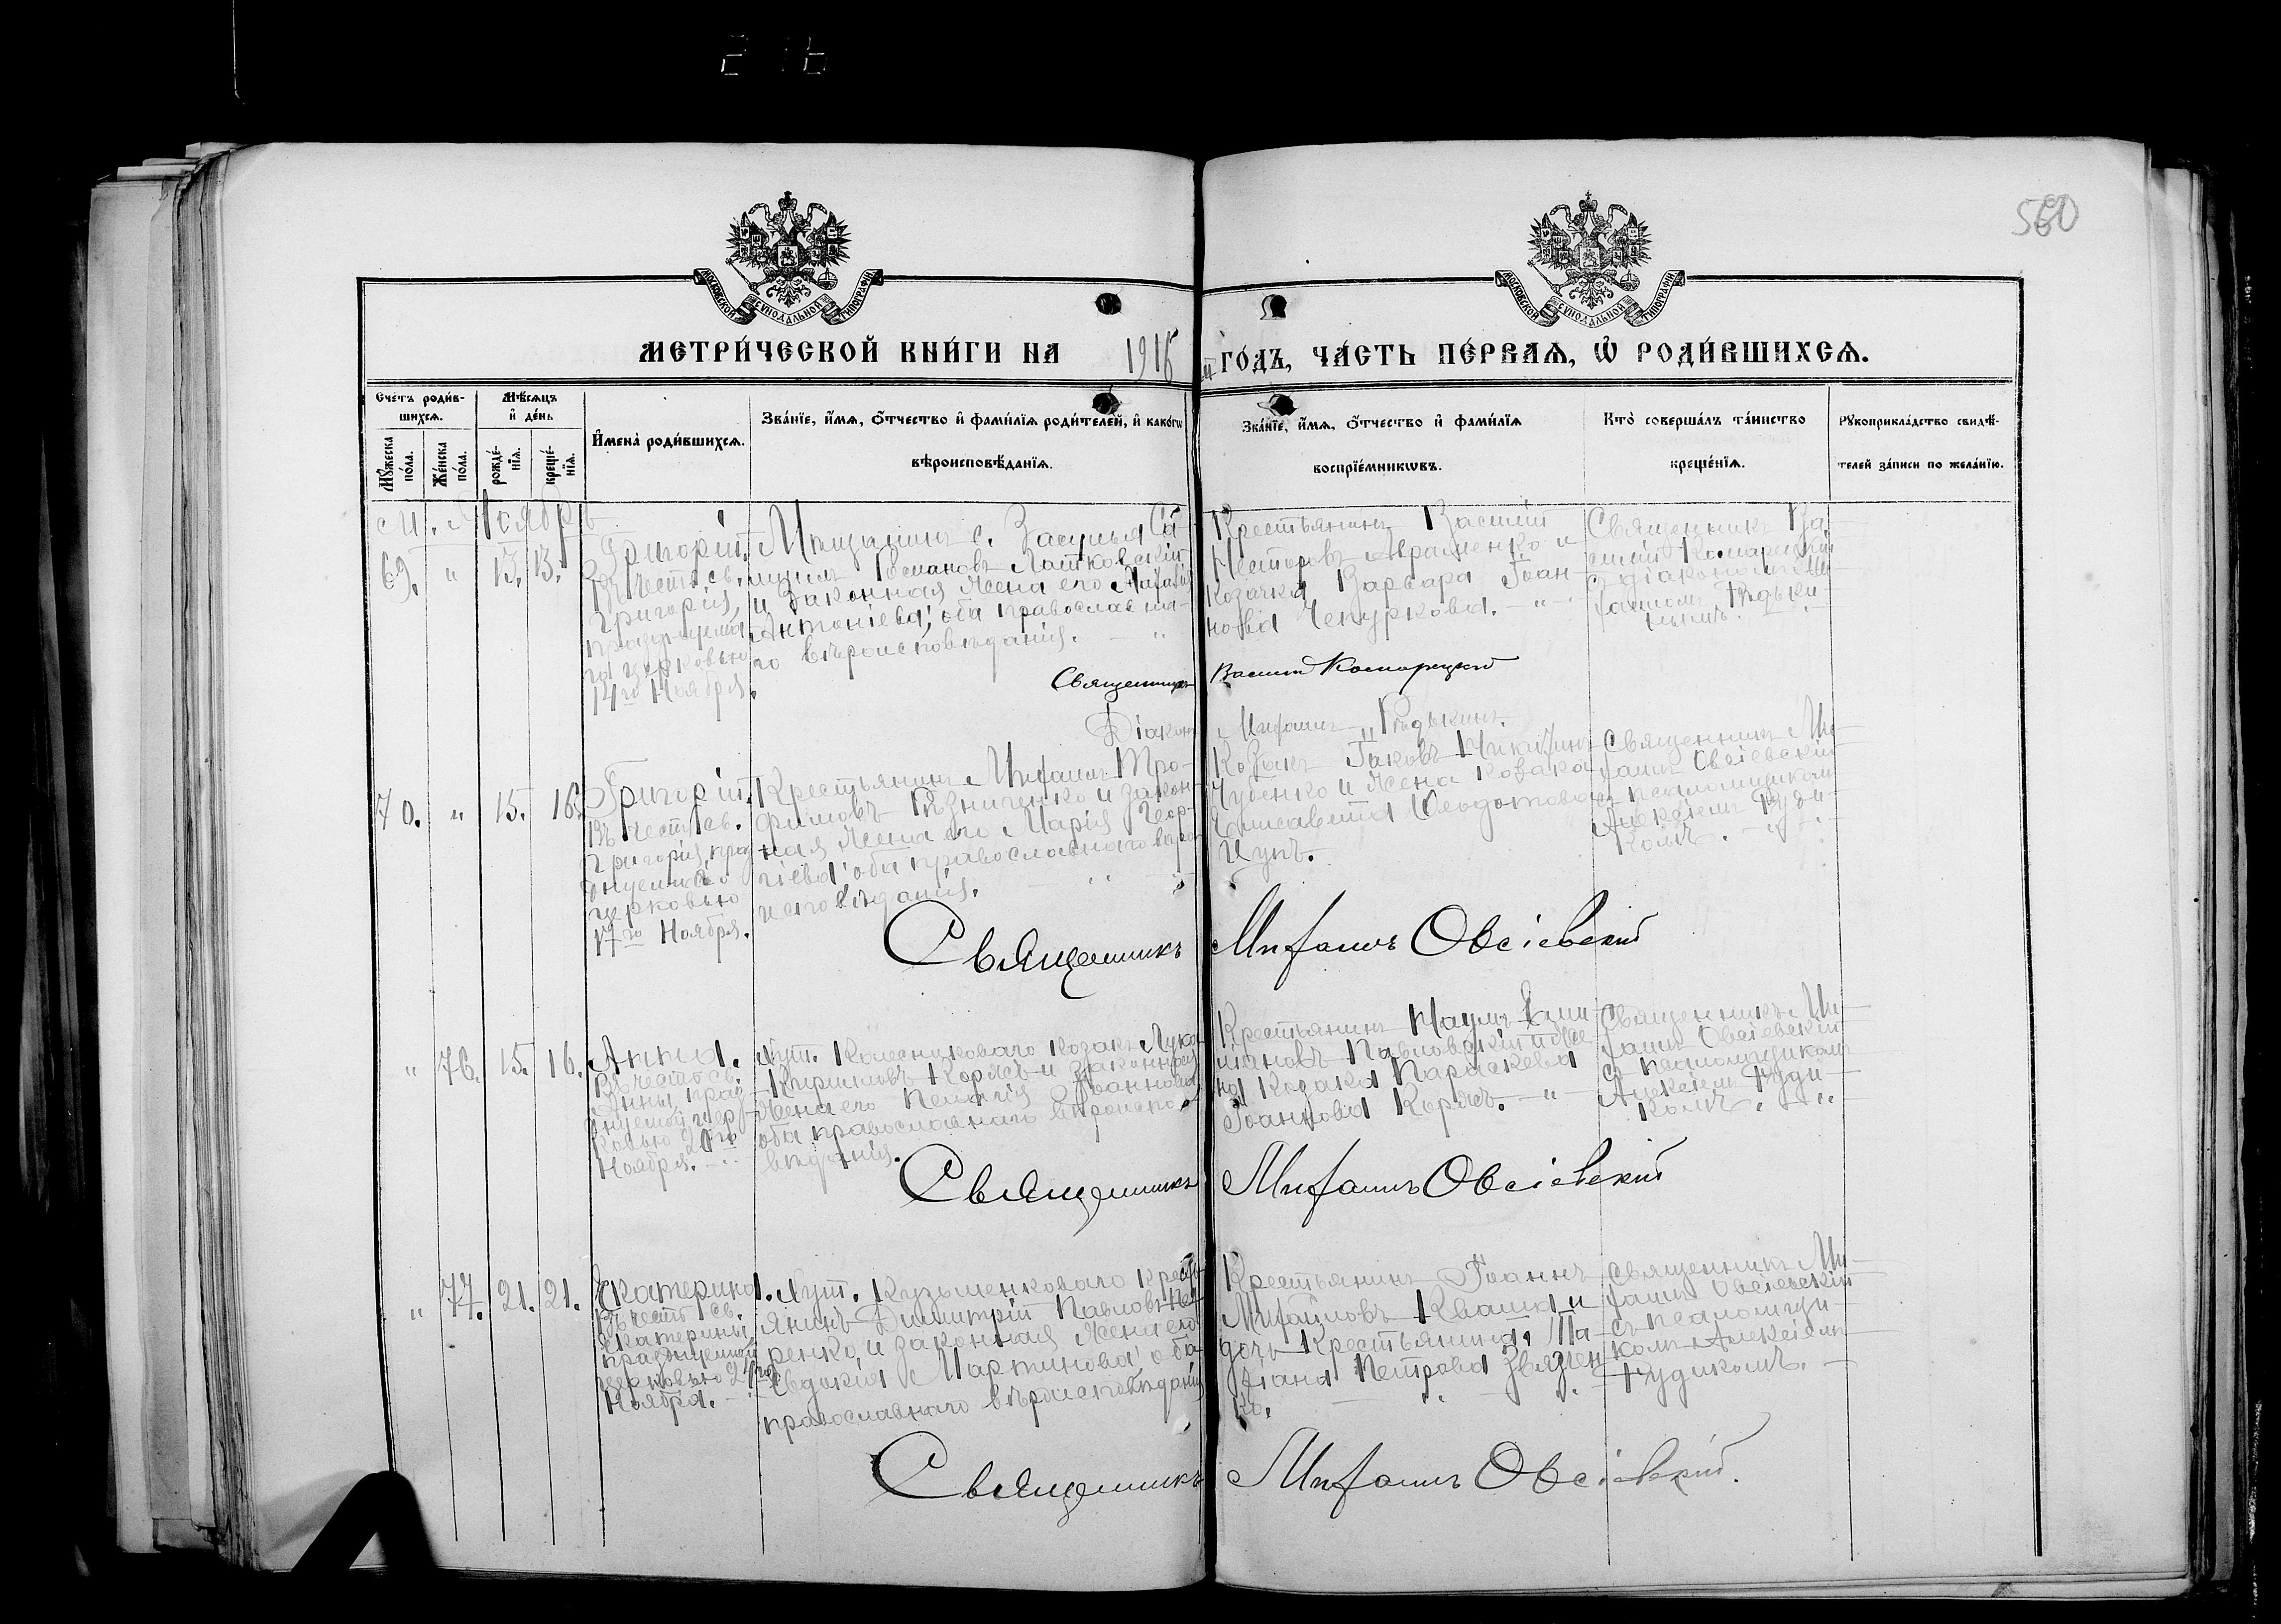 560
МОСКОВСКОЙ СѴНОДАЛЬНОЙ ТИПОГРАФІИ
МОСКОВСКОЙ СѴНОДАЛЬНОЙ ТИПОГРАФІИ
МЕТРИ́ЧЕСКОЙ КНИ́ГИ НА 1916 й ГО́ДЪ, ЧА́СТЬ ПЕ́РВАѦ, Ѡ҆ РОДИ́ВШИХСѦ.
Сче́тъ роди́в-
шихсѧ.
Мꙋ́жеска по́ла.
Же́нска по́ла.
Мѣ́сѧцъ
и҆ де́нь
рожде́-
нїѧ.
креще́-
нїѧ.
И҆мена̀ роди́вшихсѧ.
Зва́нїе, и҆́мѧ, ѻ҆́тчество и҆ фами́лїѧ роди́телей, и҆ како́гѡ
вѣроисповѣ́данїѧ.
Зва́нїе, и҆́мѧ, ѻ҆́тчество и҆ фами́лїѧ
воспрїе́мникѡвъ.
Кто̀ соверша́лъ та́инство
креще́нїѧ.
Рꙋкоприкла́дство свидѣ́-
телей за́писи по жела́нїю.
М. Ноябрь
69. " 13. 13.
Григорій.
Въ честь св.
Григорія,
празднуема
го церковью
14го Ноября.
Мѣщанинъ с. Засулья
Латковскій
и законная жена его
Антоніева; оба православна-
го вѣроисповѣданія. "
Крестьянинъ Василій
Несторовъ Авраменко и
козачка Варвара Іоан-
нова Чепуркова. "
Священникъ Ва-
силій Комарецкій
съ діакономъ Ми-
хаиломъ Рѣдьки-
нымъ.
Священникъ Василій Комарецкій
Діаконъ Михаилъ Рѣдькинъ.
70. " 15. 16.
Григорій.
Въ честь св.
Григорія, праз
днуемаго
церковью
17го Ноября.
Крестьянинъ Михаилъ Тро-
фимовъ Рѣзниченко и закон-
ная жена его Марія Геор-
гіева; оба православнаго вѣро
исповѣданія. "
Козакъ Іаковъ
Чубенко и жена козака
Елисавета Ѳеодотова
Цупъ.
Священникъ Ми-
хаилъ Овсіевскій
съ псаломщикомъ
Алексіемъ Руди-
комъ. "
Священникъ Михаилъ Овсіевскій
" 76. 15. 16.
Анна.
Въ честь св.
Анны, праз-
днуемой цер-
ковью 20го
Ноября.
Хут. Колесниковаго козакъ Лука
Кирилловъ Корясъ и законная
жена его Пелагія Іоаннова
оба православнаго вѣроиспо-
вѣданія.
Крестьянинъ Наумъ Еми-
ліановъ Павловскій и же
на козака Параскева
Іоаннова Корясъ. "
Священникъ Ми-
хаилъ Овсіевскій
съ псаломщикомъ
Алексіемъ Руди-
комъ. "
Священникъ Михаилъ Овсіевскій
" 77. 21. 21.
Екатерина.
Въ честь св.
Екатерины,
празднуемой
церковью 24го
Ноября.
Хут. Кузьменковаго крест
янинъ Димитрій Павловъ
ренко и законная жена его
Евдокія Мартинова; оба
православнаго вѣроисповѣданія
Крестьянинъ Іоаннъ
Михайловъ Квашка и
дочь крестьянина, Та-
тіана Петрова Звязен
ко.
Священникъ Ми-
хаилъ Овсіевскій
съ псаломщи-
комъ Алексіемъ
Рудикомъ.
Священникъ Михаилъ Овсіевскій.